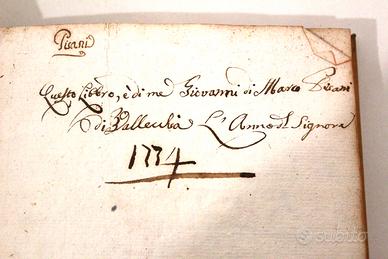 Pisani
Questo Libbro, è di me Giovanni di Marco Pisani
di Vallecchia L'Anno dl Signora
1774
subito